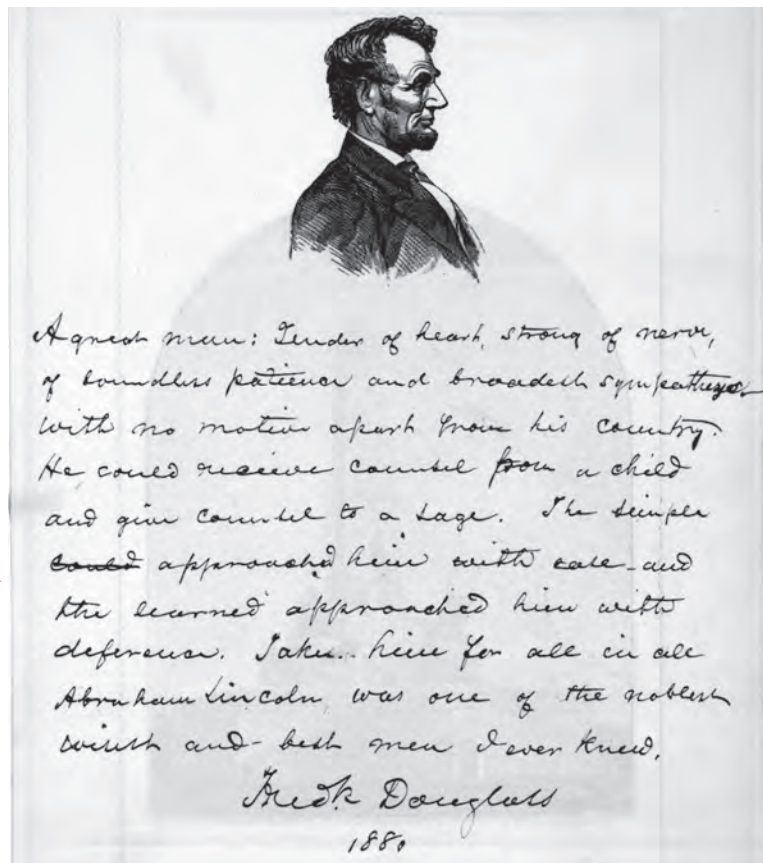 A great man: Tender of heart, strong of nerve,
of boundless patience and broadest sympathy
with no motive apart from his country.
He could receive counsel from a child
and give counsel to a sage. The simple
could approached him with ease - and
the learned approached him with
deference. Take him for all in all
Abraham Lincoln was one of the noblest
wisest and - best men I ever knew.
Fredk Douglass
1880